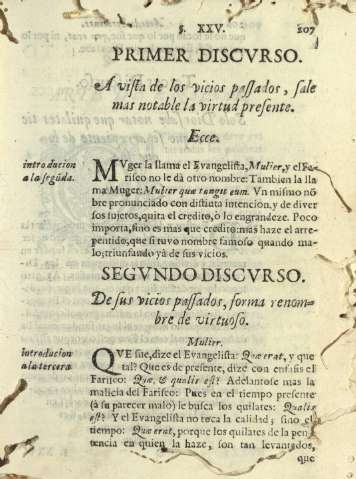 §. XXV. 207
PRIMER DISCVRSO.
A vista de los vicios passados, sale
mas notable la virtud presente.
Ecce.
introducion
a la segũda.
MVger la llama el Evangelista, Mulier, y el Fa-
riseo no le dà otro nombre: Tambien la lla
ma Muger: Mulier quæ tangit eum. Vn mismo nõ
bre pronunciado con distinta intencion, y de diver
sos sujetos, quita el credito, ò lo engrandeze. Poco
importa, sino es mas que credito: mas haze el arre-
pentido, que si tuvo nombre famoso quando ma-
lo; triunfando yà de sus vicios.
SEGVNDO DISCVRSO.
De sus vicios passados, forma renom-
bre de virtuoso.
Mulier.
introducion
a la tercera.
QVE fue, dize el Evangelista: Quæ erat, y que
tal? Que es de presente, dize con enfasis el
Fariseo: Quæ, & qualis est? Adelantose mas la
malicia del Fariseo: Pues en el tiempo presente
(à su parecer malo) le busca los quilates: Qualis
est? Y el Evangelista no toca la calidad; sino el
tiempo: Quæ erat, porque los quilates de la peni
tencia en quien la haze, son tan levantados,
que